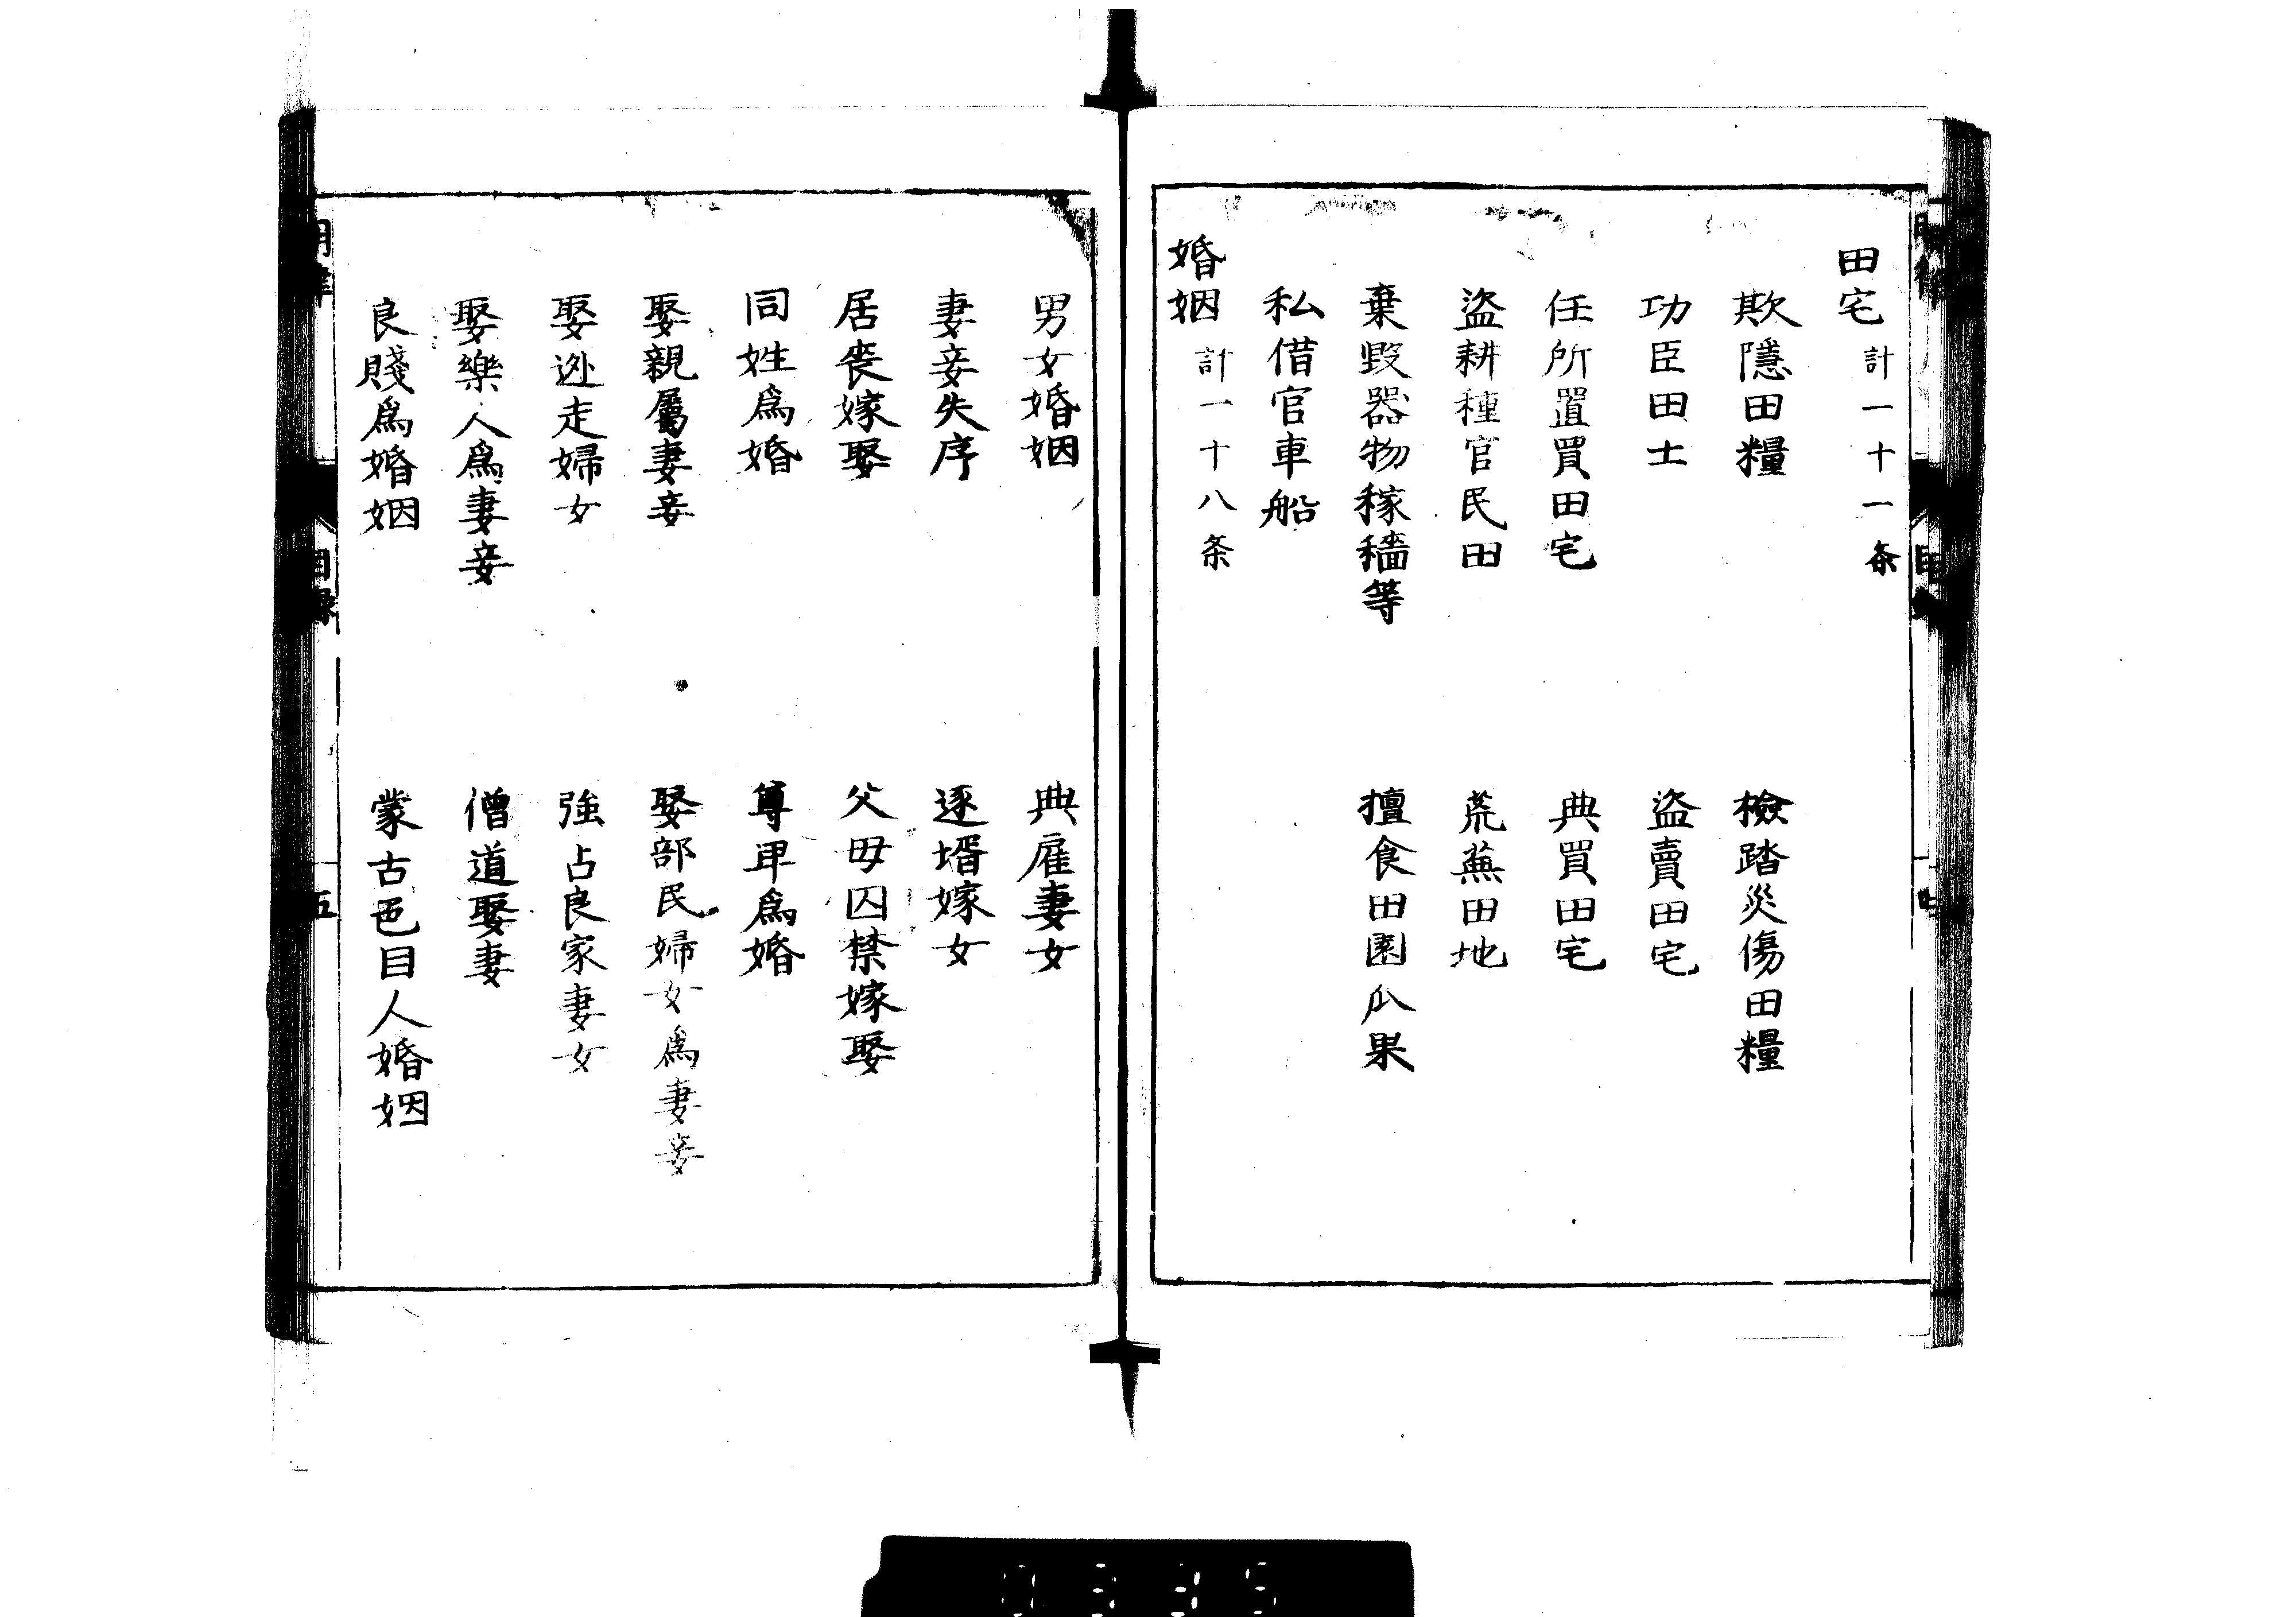 田宅 計一十一条
欺隱田糧 檢踏災傷田糧
功臣田土 盜賣田宅
任所置買田宅 典買田宅
盜耕種官民田 荒蕪田地
棄毀器物稼穡等 擅食田園瓜果
私借官車船
婚姻 計一十八条
男女婚姻 典雇妻女
妻妾失序 逐壻嫁女
居喪嫁娶 父母囚禁嫁娶
同姓為婚 尊卑為婚
娶親屬妻妾 娶部民婦女為妻妾
娶逃走婦女 強占良家妻女
娶樂人為妻妾 僧道娶妻
良賤為婚姻 蒙古色目人婚姻
目錄
五